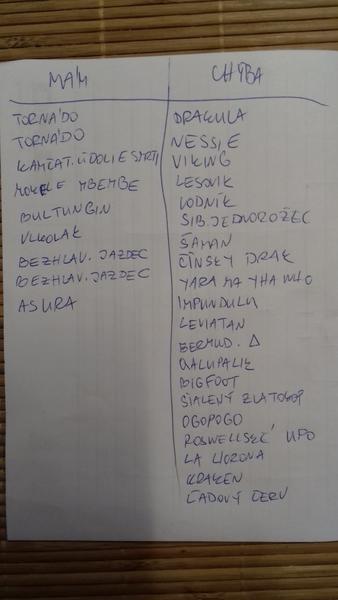 MÁM
TORNÁDO
TORNÁDO
KAMČAT. ÚDOLIE SMRTI
MOKELE MBEMBE
BULTUNGIN
VLKOLAK
BEZHLAV. JAZDEC
BEZHLAV. JAZDEC
ASURA
CHÝBA
DRAKULA
NESSIE
VIKING
LESOVIK
VODNÍK
SIB. JEDNOROŽEC
ŠAMAN
ČÍNSKY DRAK
YARA MA YHA WHO
IMPUNDULU
LEVIATAN
BERMUD. Δ
QALUPALIK
BIGFOOT
ŠIALENÝ ZLATOKOP
OGOPOGO
ROSWELLSKÉ UFO
LA LLORONA
KRAKEN
ĽADOVÝ ČERV